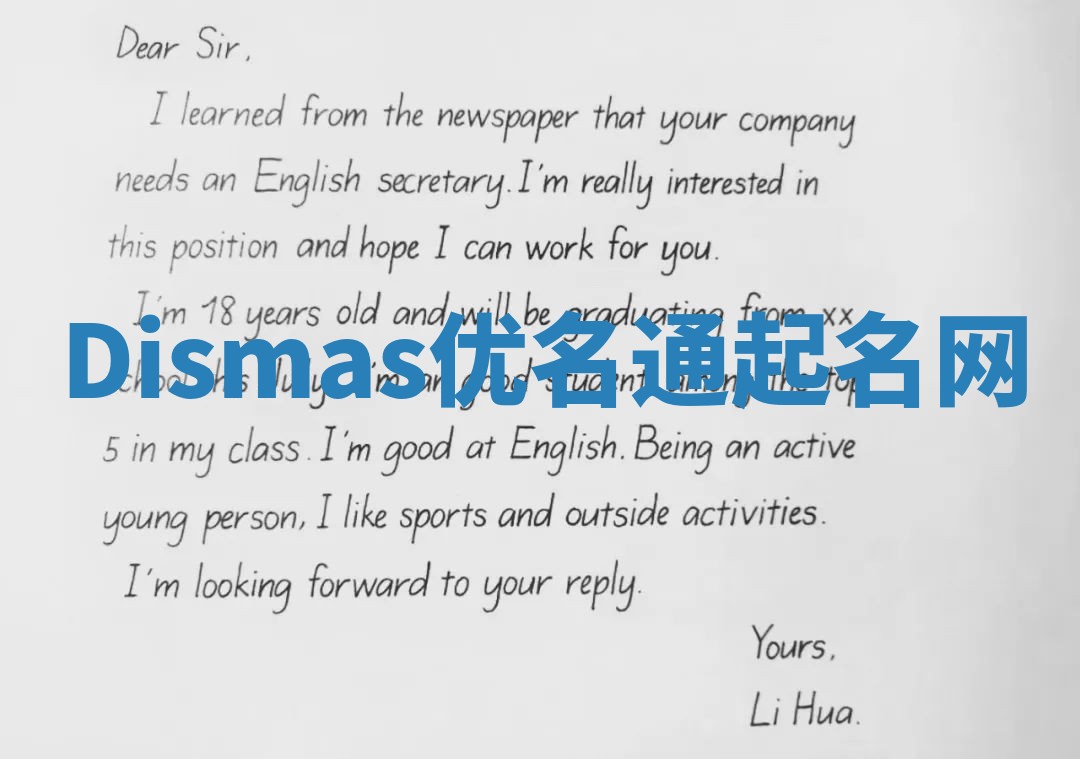 Dear Sir,
I learned from the newspaper that your company
needs an English secretary. I'm really interested in
this position and hope I can work for you.
I'm 18 years old and will be graduating from xx
Dismas优名通起名网
school this July. I'm an good student among the top
5 in my class. I'm good at English. Being an active
young person, I like sports and outside activities.
I'm looking forward to your reply.
Yours,
Li Hua.